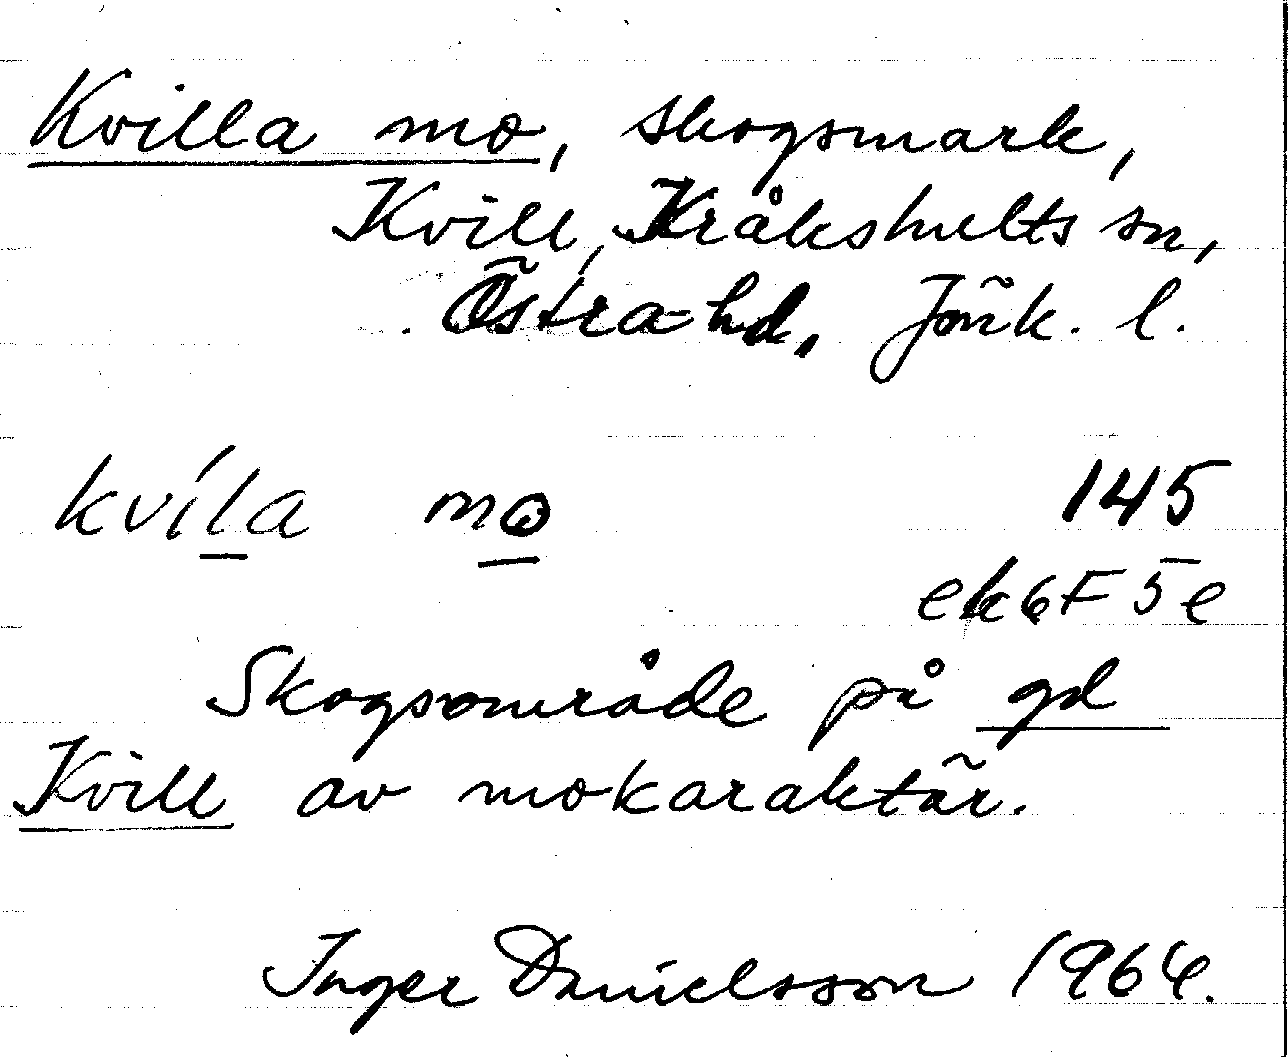 Kvilla mo, skogsmark,
Kvill, Kråkshults sn,
Östra hd, Jönk. l.
kvíla mo 145
ek 6F 5e
Skogsområde på gd
Kvill av mokaraktär.
Inger Danielsson 1964.